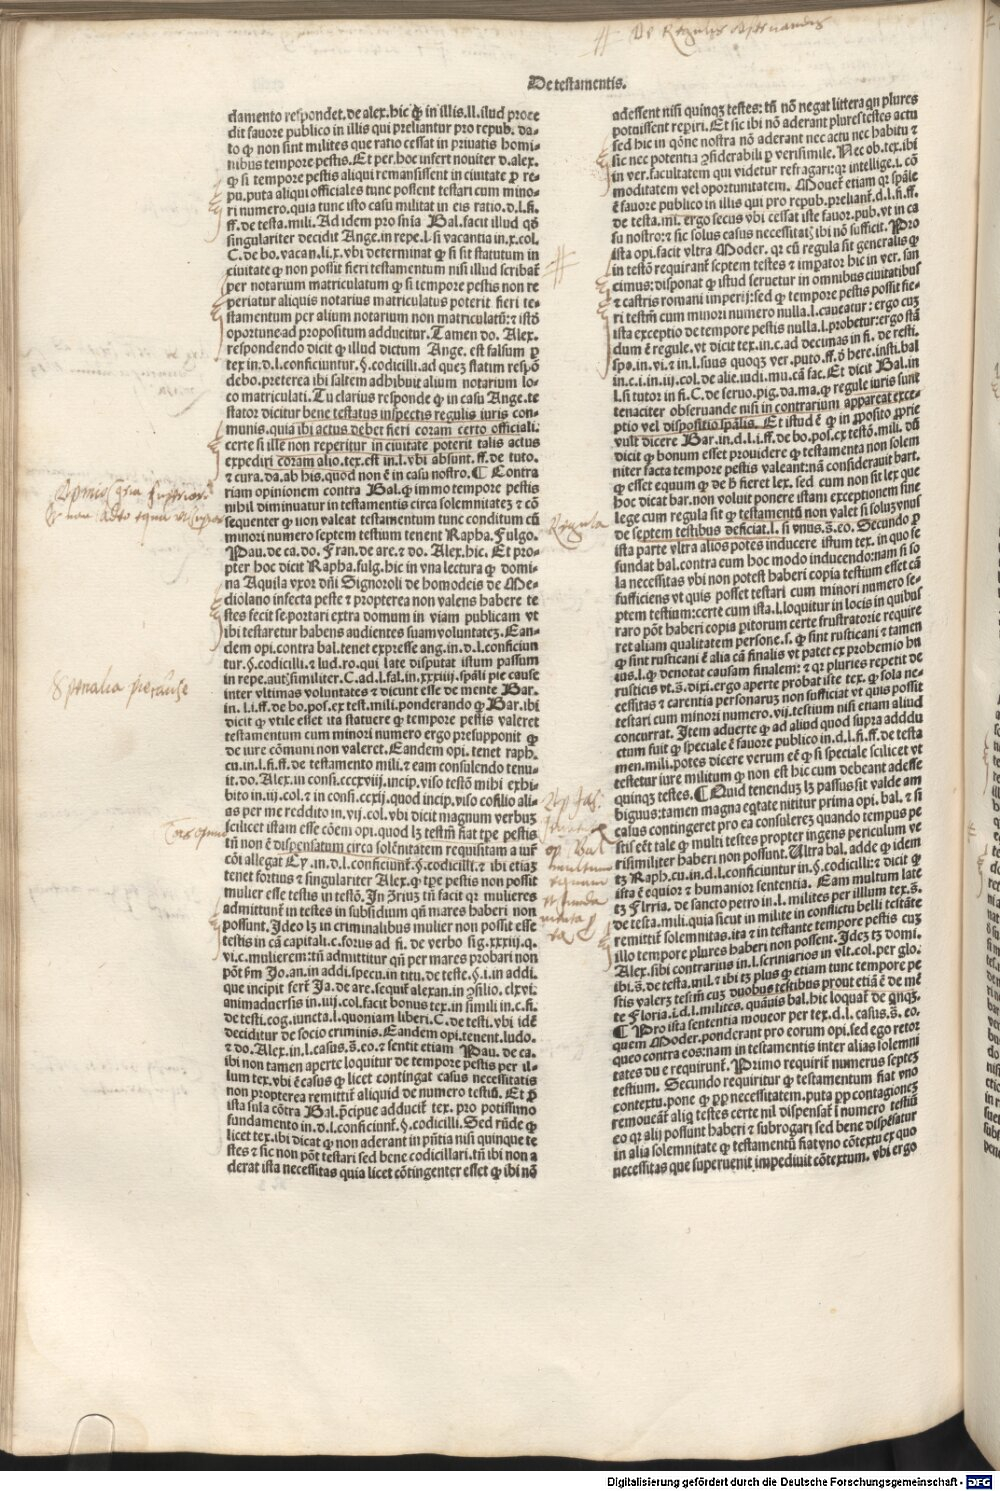 De Regulis
De testamentis.
damento respondet. de alex. hic ꝙ in illis. ll. illud proce
dit fauore publico in illis qui preliantur pro repub. da-
to ꝙ non sint milites que ratio cessat in priuatis homi-
nibus tempore pestis. Et per hoc infert nouiter d. alex.
ꝙ si tempore pestis aliqui remansissent in ciuitate ꝓ re
pu. puta aliqui officiales tunc possent testari cum mino-
ri numero. quia tunc isto casu militat in eis ratio. d. l. fi.
ff. de testa. mili. Ad idem pro snia Bal. facit illud qđ
singulariter decidit Ange. in repe. l. si vacantia in. x. col.
C. de bo. vacan. li. x. vbi determinat ꝙ si sit statutum in
ciuitate ꝙ non possit fieri testamentum nisi illud scribat̃
per notarium matriculatum ꝙ si tempore pestis non re
periatur aliquis notarius matriculatus poterit fieri te-
stamentum per alium notarium non matriculatũ: ⁊ istđ
oportune ad propositum adducitur. Tamen do. Alex.
respondendo dicit ꝙ illud dictum Ange. est falsum ꝑ
tex in. d. l. conficiuntur. §. codicilli. ad quez statim respõ
debo. preterea ibi saltem adhibuit alium notarium lo-
co matriculati. Tu clarius responde ꝙ in casu Ange. te
stator dicitur bene testatus inspectis regulis iuris con-
munis. quia ibi actus debet fieri coram certo officiali:
certe si ille non reperitur in ciuitate poterit talis actus
expediri coram alio. tex. est in. l. vbi absunt. ff. de tuto.
⁊ cura. da. ab his. quod non ẽ in casu nostro. ¶ Contra
riam opinionem contra Bal. ꝙ immo tempore pestis
nihil diminuatur in testamentis circa solemnitatez ⁊ cõ
sequenter ꝙ non valeat testamentum tunc conditum cũ
minori numero septem testium tenent Rapha. Fulgo.
Pau. de ca. do. Fran. de are. ⁊ do. Alex. hic. Et pro-
pter hoc dicit Rapha. fulg. hic in vna lectura ꝙ domi-
na Aquila vxor dñi Signoroli de homodeis de Me-
diolano infecta peste ⁊ propterea non valens habere te
stes fecit se portari extra domum in viam publicam vt
ibi testaretur habens audientes suam voluntatez. Ean-
dem opi. contra bal. tenet expresse ang. in. d. l. conficiun
tur. §. codicilli. ⁊ lud. ro. qui late disputat istum passum
in repe. autẽ. similiter. C. ad. l. fal. in. xxxiij. spãli pie cause
inter vltimas voluntates ⁊ dicunt esse de mente Bar.
in. l. i. ff. de bo. pos. ex test. mili. ponderando ꝙ Bar. ibi
dicit ꝙ vtile esset ita statuere ꝙ tempore pestis valeret
testamentum cum minori numero ergo presupponit ꝙ
de iure cõmuni non valeret. Eandem opi. tenet raph.
cu. in. l. fi. ff. de testamento mili. ⁊ eam consulendo tenu-
it. do. Alex. in consi. ccccxviij. incip. viso testõ mihi exhi-
bito in. iij. col. ⁊ in consi. ccxij. quod incip. viso cõsilio ali-
as per me reddito in. vij. col. vbi dicit magnum verbuz
scilicet istam esse cõem opi. quod lz testm̃ fiat tpe pestis
tñ non ẽ dispensatum circa solẽnitatem requisitam a iur̃
cõi allegat Cy. in. d. l. conficiunt̃. §. codicilli. ⁊ ibi etiaz
tenet fortius ⁊ singulariter Alex. ꝙ tpe pestis non possit
mulier esse testis in testõ. In ꝯriuz tñ facit qr mulieres
admittunt̃ in testes in subsidium qñ mares haberi non
possunt. Ideo lz in criminalibus mulier non possit esse
testis in cã capitali. c. forus ad fi. de verbo sig. xxxiij. q.
vi. c. mulierem: tñ admittitur qñ per mares probari non
põt ẜm Jo. an. in addi. specu. in titu. de teste. §. i. in addi.
que incipit fert̃ Ja. de are. sequit̃ alexan. in ꝯsilio. clxvi.
animaduersis in. iij. col. facit bonus tex. in simili in. c. fi.
de testi. cog. iuncta. l. quoniam liberi. C. de testi. vbi idẽ
deciditur de socio criminis. Eandem opi. tenent. ludo.
⁊ do. Alex. in. l. casus. s̃. eo. ⁊ sentit etiam Pau. de ca.
ibi non tamen aperte loquitur de tempore pestis per il-
lum tex. vbi ẽ casus ꝙ licet contingat casus necessitatis
non propterea remittit̃ aliquid de numero testiũ. Et ꝓ
ista snia cõtra Bal. pcipue adducit̃ tex. pro potissimo
fundamento in. d. l. conficiunt̃. §. codicilli. Sed rñde ꝙ
licet tex. ibi dicat ꝙ non aderant in pñtia nisi quinque te
stes ⁊ sic non põt testari sed bene codicillari. tñ ibi non a
derat ista necessitas quia licet cõtingenter esset ꝙ ibi nõ
Regula
adessent nisi quinqz testes: tñ nõ negat littera qn plures
potuissent repiri. Et sic ibi nõ aderant plures testes actu
sed hic in qõne nostra nõ aderant nec actu nec habitu ⁊
sic nec potentia ꝯsiderabili ꝑ verisimile. Nec ob. tex. ibi
in ver. facultatem qui videtur refragari: qr intellige. i. cõ
moditatem vel oportunitatem. Mouet̃ etiam qr spãle
ẽ fauore publico in illis qui pro repub. preliant̃. d. l. fi. ff.
de testa. mi. ergo secus vbi cessat iste fauor. pub. vt in ca
su nostro: ⁊ sic solus casus necessitatz ibi nõ sufficit. Pro
ista opi. facit vltra Moder. qr cũ regula sit generalis ꝙ
in testõ requirant̃ septem testes ⁊ impator hic in ver. san
cimus: disponat ꝙ istud seruetur in omnibus ciuitatibus
⁊ castris romani imperij: sed ꝙ tempore pestis possit fie-
ri testm̃ cum minori numero nulla. l. caueatur: ergo cuz
ista exceptio de tempore pestis nulla. l. probetur: ergo stã
dum ẽ regule. vt dicit tex. in. c. ad decimas in fi. de resti.
spo. in. vi. ⁊ in. l. suus quoqz ver. puto. ff. đ here. insti. bal
in. c. i. in. iij. col. de alie. iudi. mu. cã fac. Et dicit Bal. in
l. si tutor in fi. C. de seruo. pig. da. ma. ꝙ regule iuris sunt
tenaciter obseruande nisi in contrarium appareat exce-
ptio vel dispositio spãlis. Et istud ẽ ꝙ in ꝓposito ꝓprie
vult dicere Bar. in. d. l. i. ff. de bo. pos. ex testõ. mili. dũ
dicit ꝙ bonum esset prouidere ꝙ testamenta non solem
niter facta tempore pestis valeant: nã considerauit bart.
ꝙ esset equum ꝙ de ħ fieret lex. sed cum non sit lex que
hoc dicat bar. non voluit ponere istam exceptionem sine
lege cum regula sit ꝙ testamentũ non valet si solus vnus
de septem testibus deficiat. l. si vnus. s̃. eo. Secundo ꝓ
ista parte vltra alios potes inducere istum tex. in quo se
fundat bal. contra eum hoc modo inducendo: nam si so
la necessitas vbi non potest haberi copia testium esset cã
sufficiens vt quis posset testari cum minori numero se-
ptem testium: certe cum ista. l. loquitur in locis in quibus
raro põt haberi copia pitorum certe frustratorie require
ret aliam qualitatem persone. s. ꝙ sint rusticani ⁊ tamen
ꝙ sint rusticani ẽ alia cã finalis vt patet ex prohemio hu
ius. l. ꝙ denotat causam finalem: ⁊ qr pluries repetit de
rusticis vt. s̃. dixi. ergo aperte probat iste tex. ꝙ sola ne-
cessitas ⁊ carentia personaruz non sufficiat vt quis possit
testari cum minori numero. vij. testium nisi etiam aliud
concurrat. Item aduerte ꝙ ad aliud quod supra adddu
ctum fuit ꝙ speciale ẽ fauore publico in. d. l. fi. ff. de testa
men. mili. potes dicere verum eẽ ꝙ si speciale scilicet vt
testetur iure militum ꝙ non est hic cum debeant adesse
quinqz testes. ¶ Quid tenenduz lz passus sit valde am
biguus: tamen magna eqtate nititur prima opi. bal. ⁊ si
casus contingeret pro ea consulerez quando tempus pe
stis eẽt tale ꝙ multi testes propter ingens periculum ve
risimiliter haberi non possunt. Ultra bal. adde ꝙ idem
tz Raph. cu. in. d. l. conficiuntur in. §. codicilli: ⁊ dicit ꝙ
ista ẽ equior ⁊ humanior sententia. Eam multum late
tz Flrria. de sancto petro in. l. milites per illum tex. s̃.
de testa. mili. quia sicut in milite in conflictu belli testãte
remittit̃ solemnitas. ita ⁊ in testante tempore pestis cuz
illo tempore plures haberi non possent. Idez tz domi.
Alex. sibi contrarius in. l. scriniarios in vlt. col. per glo.
ibi. s̃. de testa. mil. ⁊ ibi tz plus ꝙ etiam tunc tempore pe
stis valerz testm̃ cuz duobus testibus prout etiã ẽ de mẽ
te Floria. i. d. l. milites. quãuis bal. hic loquat̃ de qnqz.
¶ Pro ista sententia moueor per tex. d. l. casus. s̃. eo.
quem Moder. ponderant pro eorum opi. sed ego retor
queo contra eos: nam in testamentis inter alias solemni
tates due requirunt̃. Primo requirit̃ numerus septez
testium. Secundo requiritur ꝙ testamentum fiat vno
contextu. pone ꝙ ꝓp necessitatem. puta ꝓp contagionez
remoueat̃ aliqs testes certe nil dispensat̃ ĩ numero testiũ
eo qr alij possunt haberi ⁊ subrogari sed bene dispẽsatur
in alia solemnitate ꝙ testamentũ fiat vno cõtextu ex quo
necessitas que superuenit impediuit cõtextum. vbi ergo
Digitalisierung gefördert durch die Deutsche Forschungsgemeinschaft - DFG